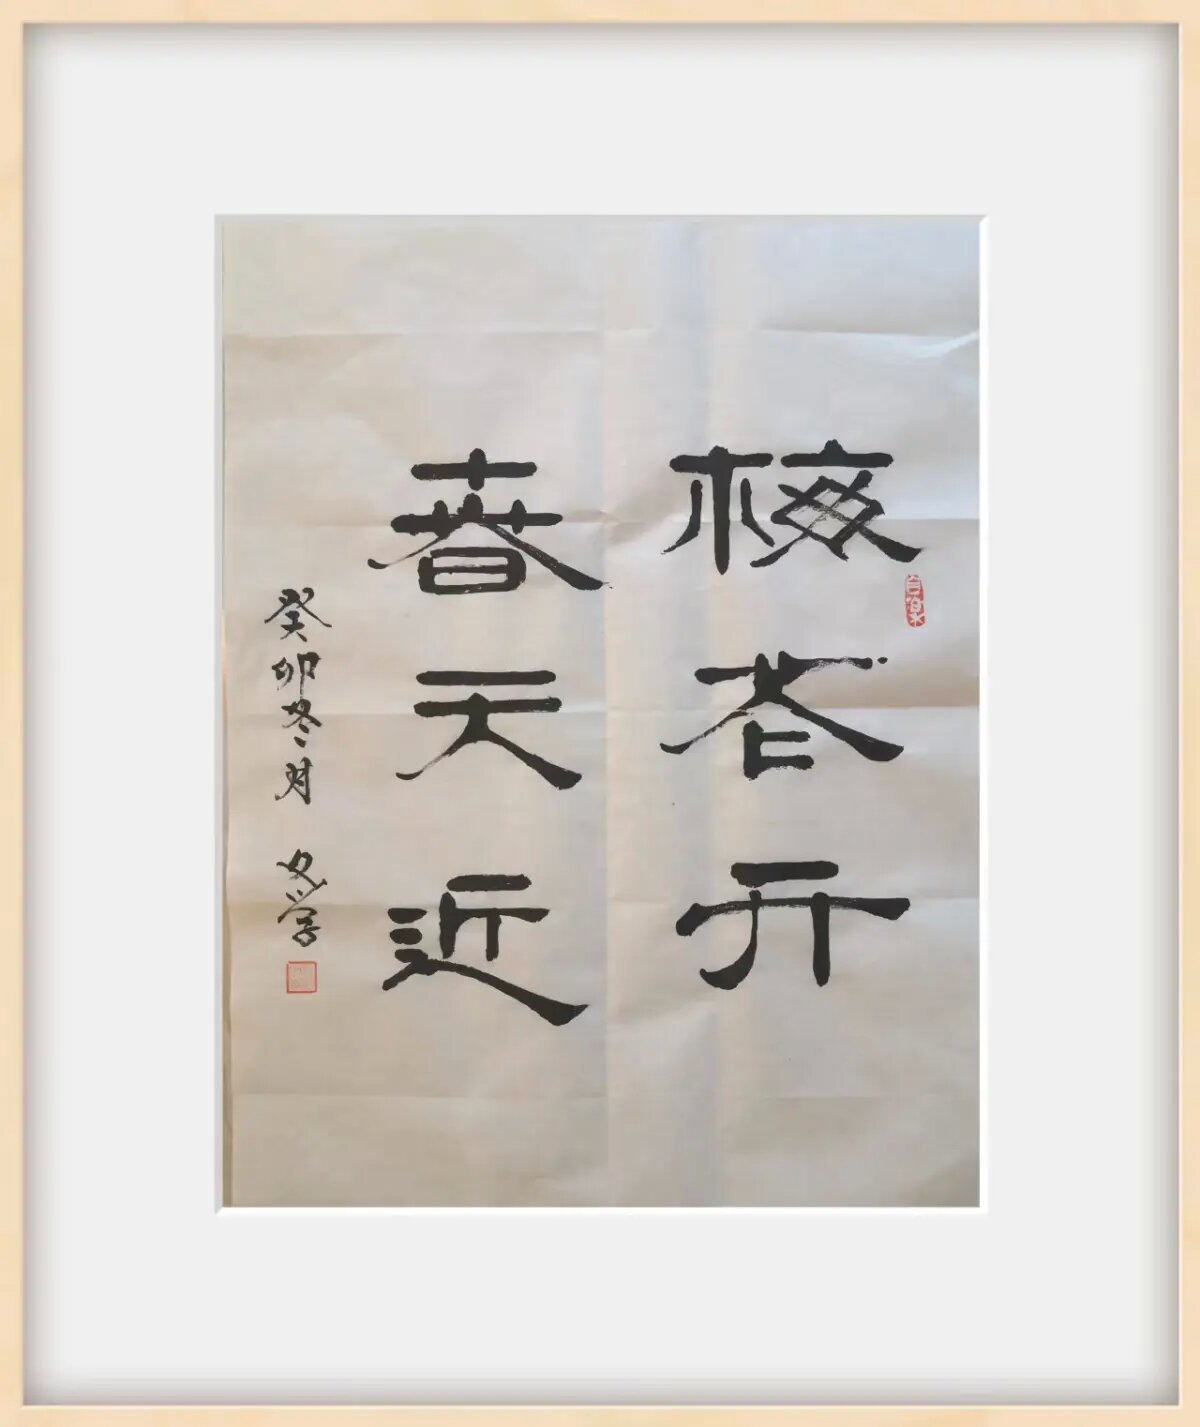 梅花开
春天近
癸卯冬月